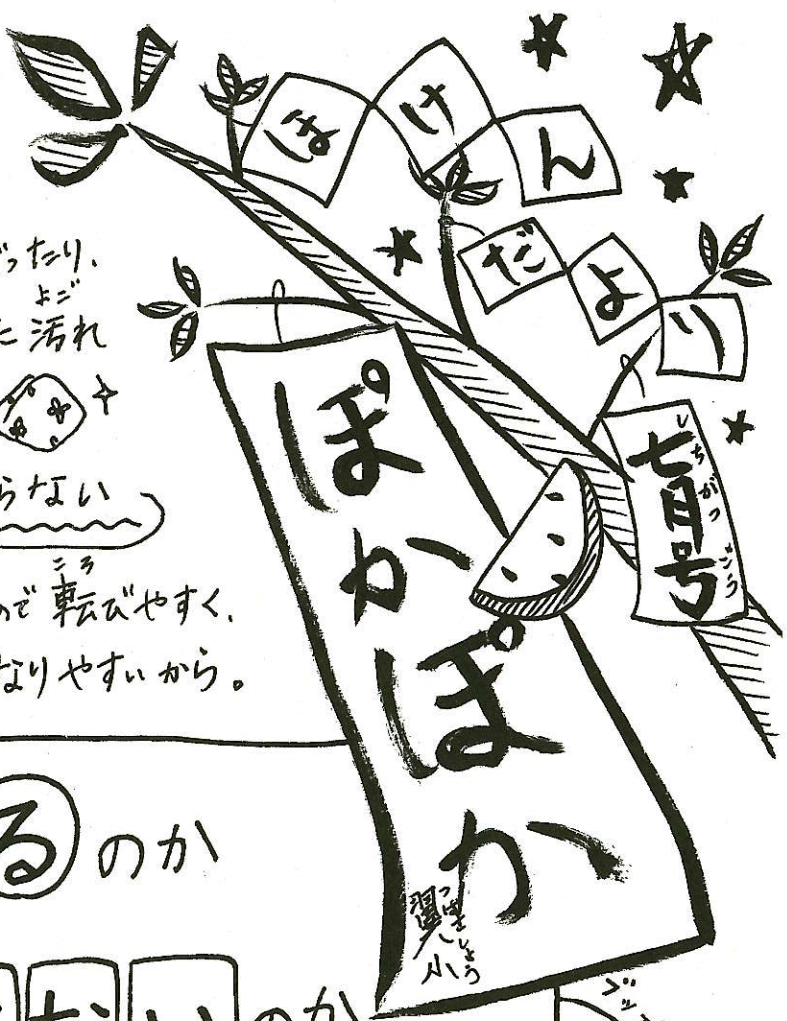 ほけん
だより
七月号
しちがつごう
ぽかぽか
翼小
つばさしょう
ったり、
よご
汚れ
らない
ころ
ので転びやすく、
なりやすいから。
るのか
ないのか